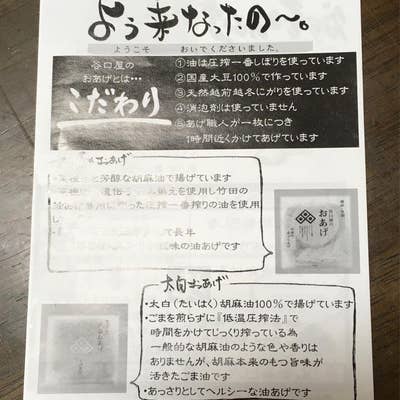 よう来なったの〜。
ようこそ おいでくださいました。
谷口屋の
おあげとは…
こだわり
①油は圧搾一番しぼりを使っています
②国産大豆100％で作っています
③天然越前越冬にがりを使っています
④消泡剤は使っていません
⑤あげ職人が一枚につき
1時間近くかけてあげています
と芳醇な胡麻油で揚げています
を使用し竹田の
圧搾一番搾りの油を使用
して長年
味の油あげです
おあげ
太白おあげ
・太白（たいはく）胡麻油100％で揚げています
・ごまを煎らずに『低温圧搾法』で
時間をかけてじっくり搾っている為
一般的な胡麻油のような色や香りは
ありませんが、胡麻本来のもつ旨味が
活きたごま油です
・あっさりとしてヘルシーな油あげです